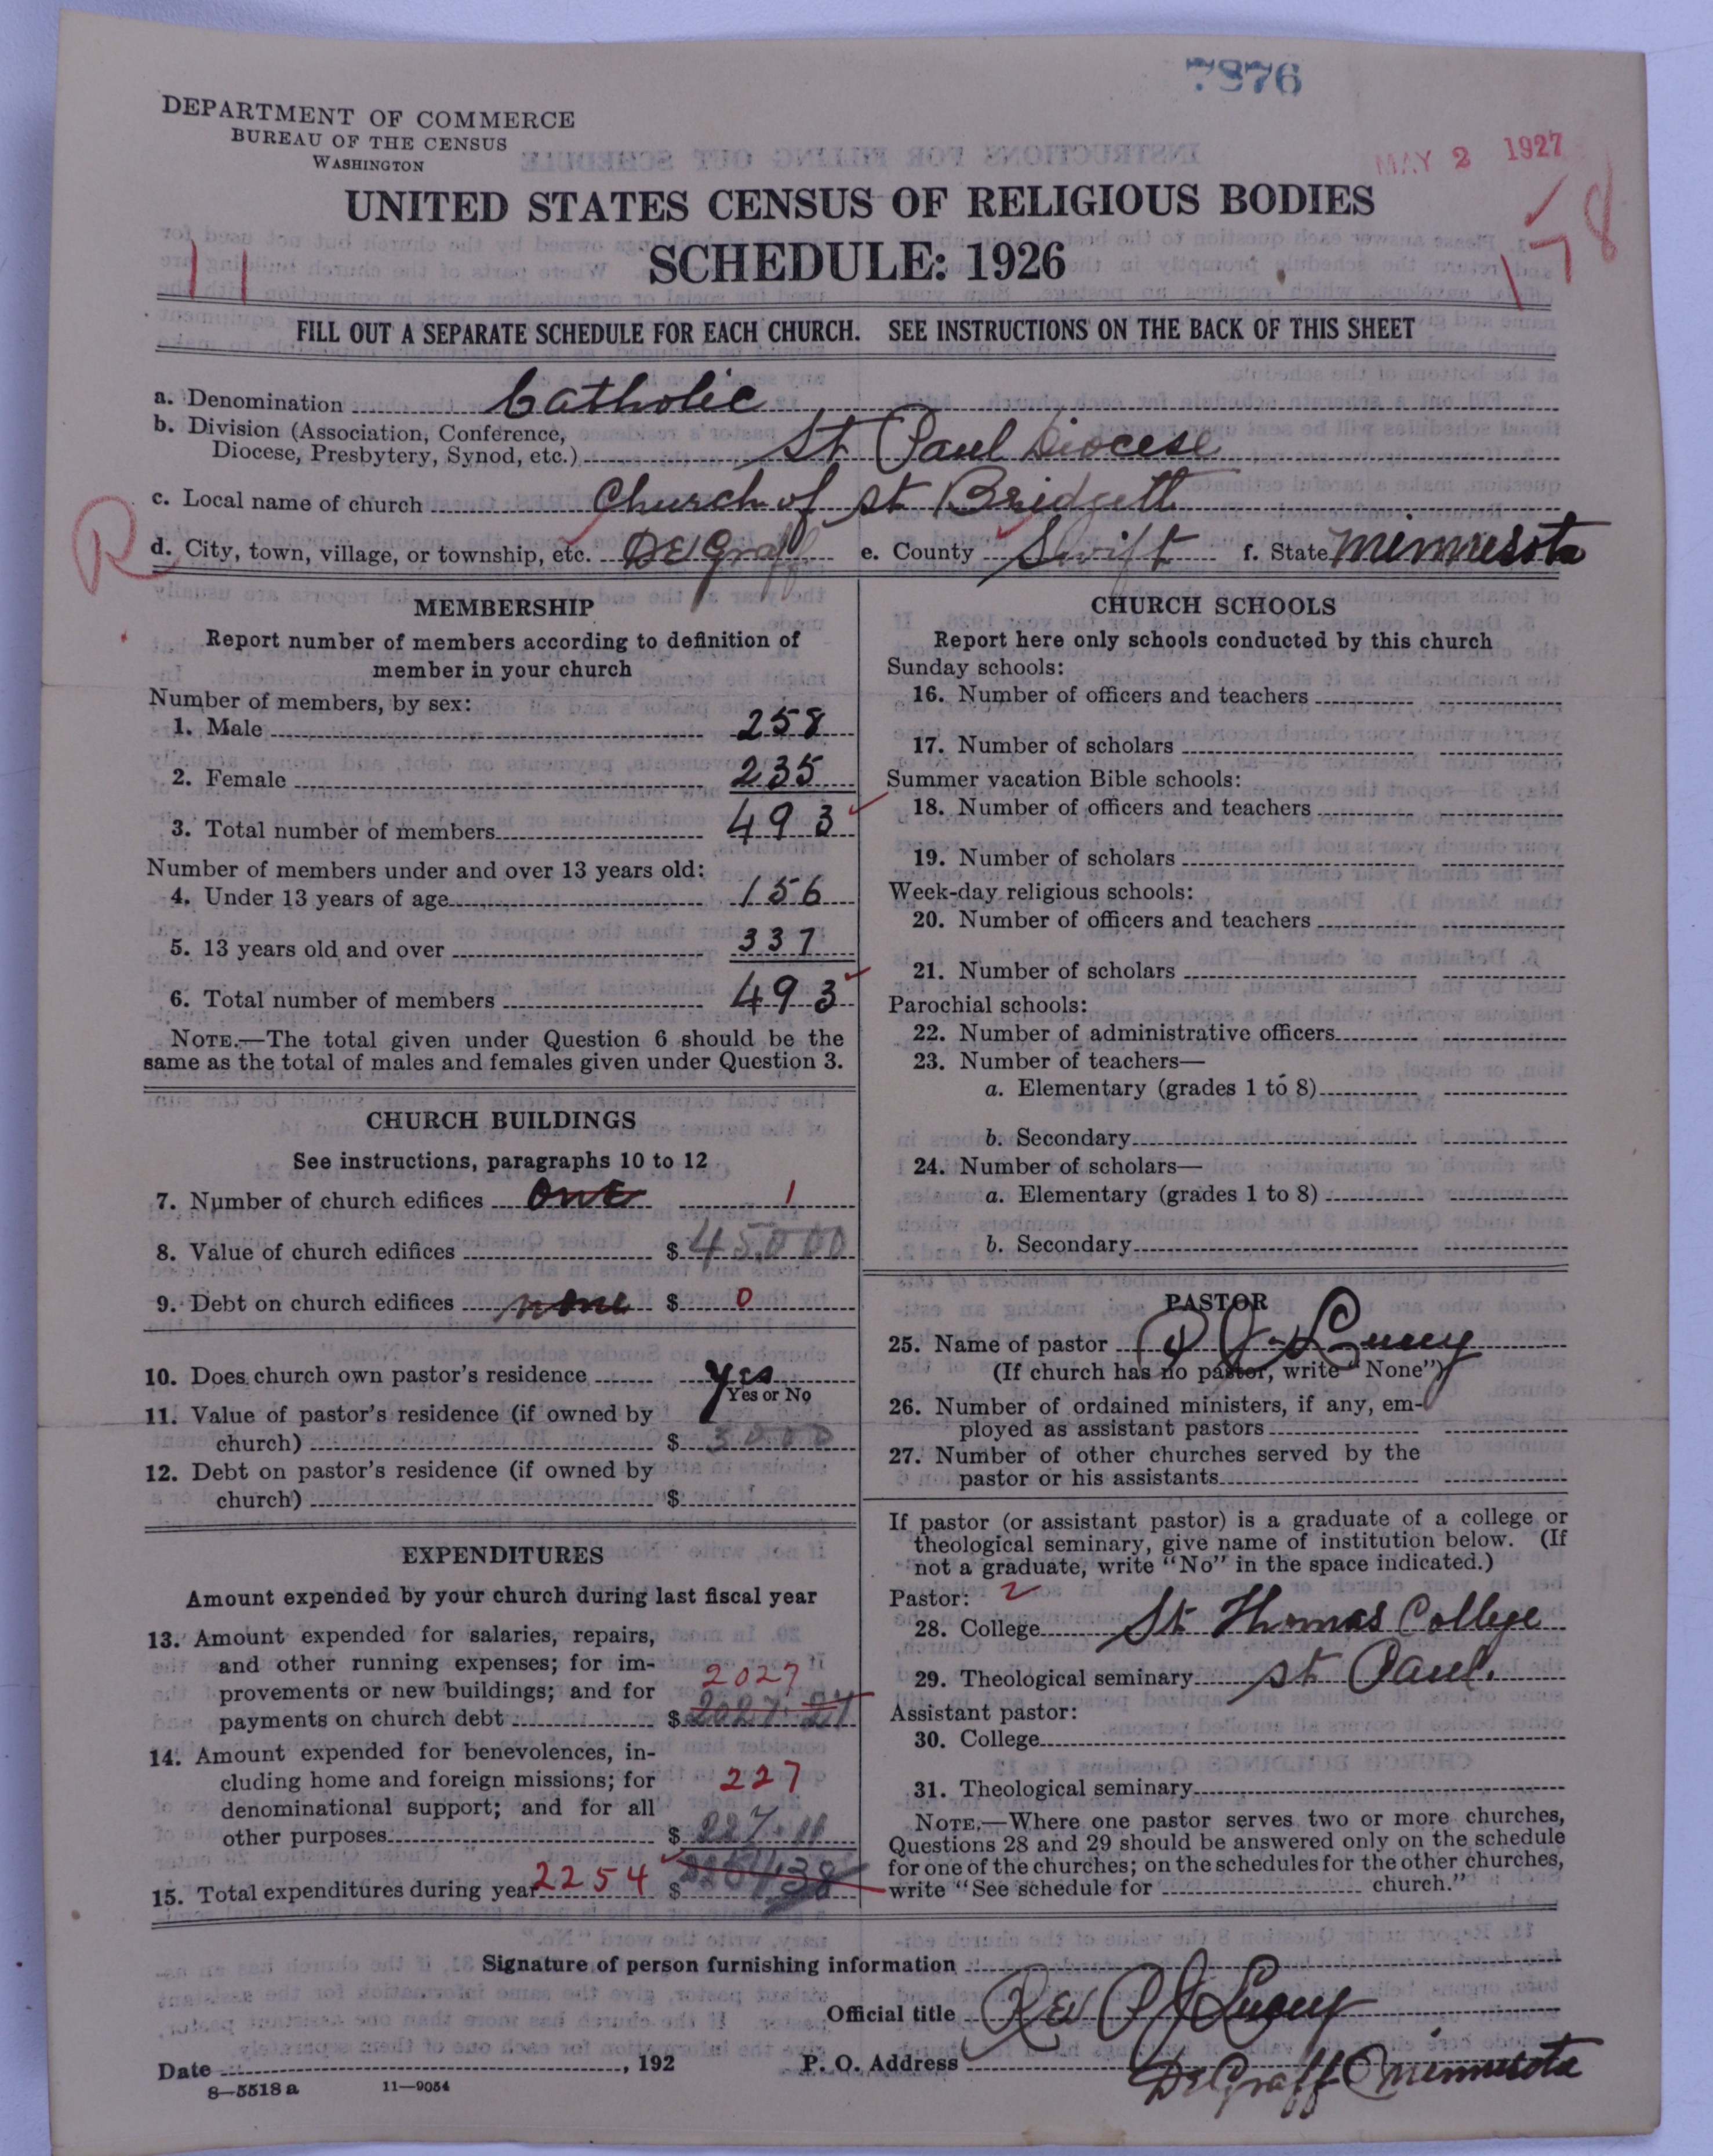 7876
DEPARTMENT OF COMMERCE
BUREAU OF THE CENSUS
WASHINGTON
MAY 2 1927
UNITED STATES CENSUS OF RELIGIOUS BODIES
SCHEDULE: 1926
11
178
FILL OUT A SEPARATE SCHEDULE FOR EACH CHURCH. SEE INSTRUCTIONS ON THE BACK OF THIS SHEET
a. Denomination Catholic
b. Division (Association, Conference,
Diocese, Presbytery, Synod, etc.) St Paul Diocese
c. Local name of church Church of St Bridgett
R
d. City, town, village, or township, etc. De Graff e. County Swift f. State Minnesota
MEMBERSHIP
Report number of members according to definition of
member in your church
Number of members, by sex:
1. Male 258
2. Female 235
3. Total number of members 493
Number of members under and over 13 years old:
4. Under 13 years of age 156
5. 13 years old and over 337
6. Total number of members 493
NOTE.—The total given under Question 6 should be the
same as the total of males and females given under Question 3.
CHURCH BUILDINGS
See instructions, paragraphs 10 to 12
7. Number of church edifices one 1
8. Value of church edifices $ 45000
9. Debt on church edifices none $ 0
10. Does church own pastor's residence yes
Yes or No
11. Value of pastor's residence (if owned by
church) $ 3000
12. Debt on pastor's residence (if owned by
church) $
EXPENDITURES
Amount expended by your church during last fiscal year
13. Amount expended for salaries, repairs,
and other running expenses; for im-
provements or new buildings; and for 2027
payments on church debt $ 2027.27
14. Amount expended for benevolences, in-
cluding home and foreign missions; for 227
denominational support; and for all
other purposes $ 227.11
15. Total expenditures during year 2254 $ 2254.38
CHURCH SCHOOLS
Report here only schools conducted by this church
Sunday schools:
16. Number of officers and teachers
17. Number of scholars
Summer vacation Bible schools:
18. Number of officers and teachers
19. Number of scholars
Week-day religious schools:
20. Number of officers and teachers
21. Number of scholars
Parochial schools:
22. Number of administrative officers
23. Number of teachers—
a. Elementary (grades 1 to 8)
b. Secondary
24. Number of scholars—
a. Elementary (grades 1 to 8)
b. Secondary
PASTOR
25. Name of pastor P J Lucey
(If church has no pastor, write "None")
26. Number of ordained ministers, if any, em-
ployed as assistant pastors
27. Number of other churches served by the
pastor or his assistants
If pastor (or assistant pastor) is a graduate of a college or
theological seminary, give name of institution below. (If
not a graduate, write "No" in the space indicated.)
Pastor: 2
28. College St Thomas College
29. Theological seminary St Paul.
Assistant pastor:
30. College
31. Theological seminary
NOTE.—Where one pastor serves two or more churches,
Questions 28 and 29 should be answered only on the schedule
for one of the churches; on the schedules for the other churches,
write "See schedule for church."
Signature of person furnishing information
Official title Rev P J Lucey
Date , 192 P. O. Address De Graff Minnesota
8—5518 a 11—9054